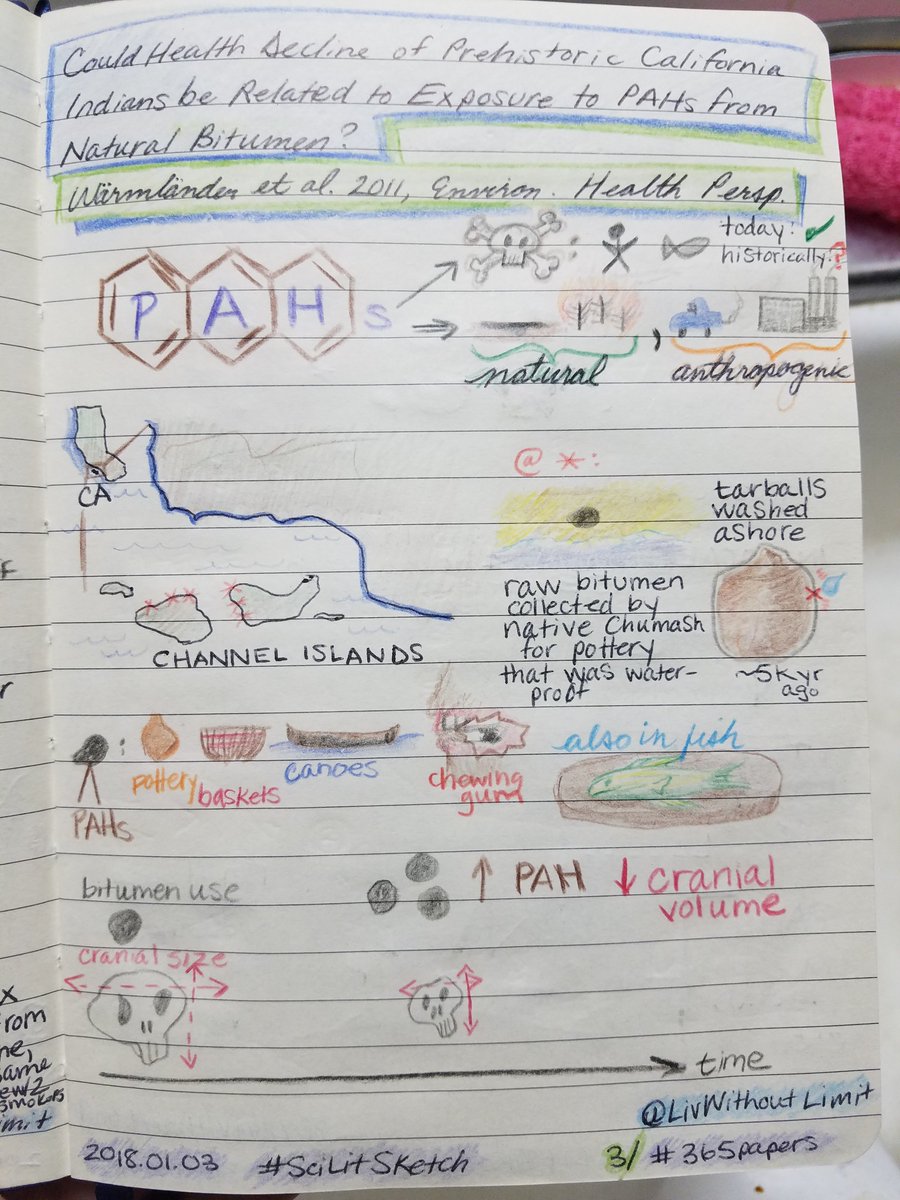 Could Health Decline of Prehistoric California
Indians be Related to Exposure to PAHs from
Natural Bitumen?
Wärmländer et al. 2011, Environ. Health Persp.
today: ✓
historically: ?
PAHs
natural
,
anthropogenic
CA
CHANNEL ISLANDS
@ *:
tarballs
washed
ashore
raw bitumen
collected by
native Chumash
for pottery
that was water-
proof
~5kyr
ago
:
PAHs
pottery
baskets
canoes
chewing
gum
also in fish
bitumen use
↑ PAH ↓ cranial
volume
cranial size
time
@LivWithoutLimit
2018.01.03 #SciLitSketch 3/ #365papers
x
from
same
smokers